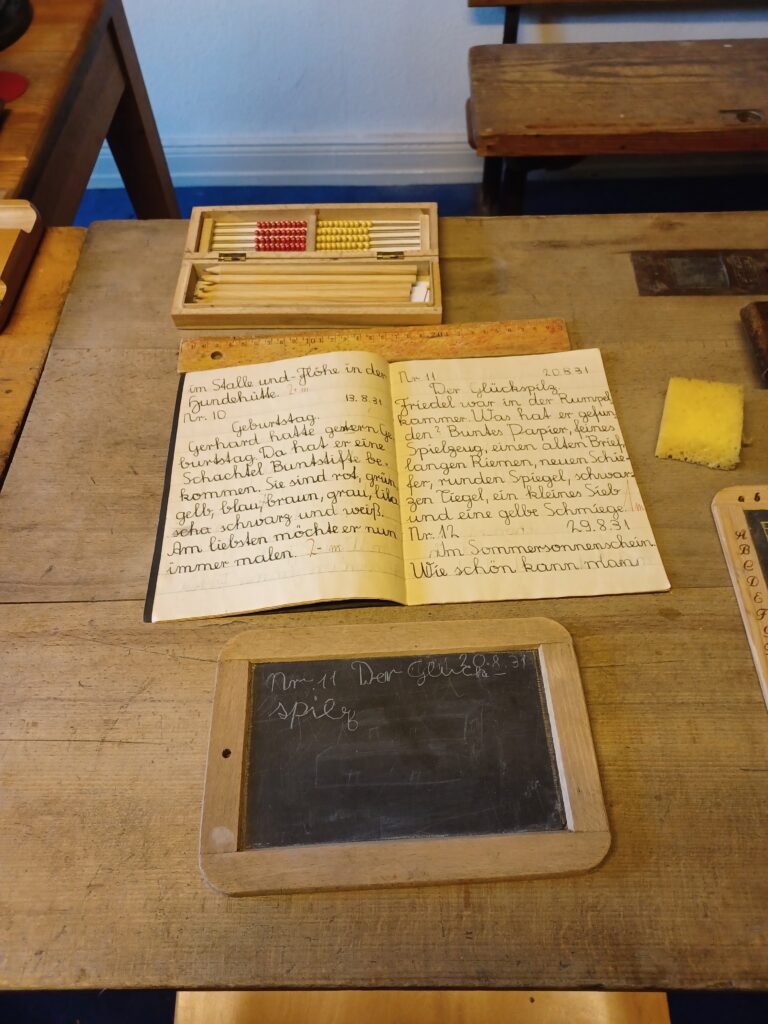 im Stalle und Flöhe in der
Hundehütte. 2-
Nr. 10 13.8.31
Geburtstag.
Gerhard hatte gestern Ge-
burtstag. Da hat er eine
Schachtel Buntstifte be-
kommen. Sie sind rot, grün
gelb, blau, braun, grau, lila
schwarz und weiß.
Am liebsten möchte er nun
immer malen. 2-
Nr. 11 20.8.31
Der Glückspilz
Friedel war in der Rumpel
kammer. Was hat er gefun
den? Buntes Papier, feines
Spielzeug, einen alten Brief,
langen Riemen, neuen Schie-
fer, runden Spiegel, schwar-
zen Tiegel, ein kleines Sieb
und eine gelbe Schmiege.
Nr. 12 29.8.31
Im Sommersonnenschein.
Wie schön kann man
Nr 11 Der Glück- 20.8.31
spilz
A
B
C
D
E
F